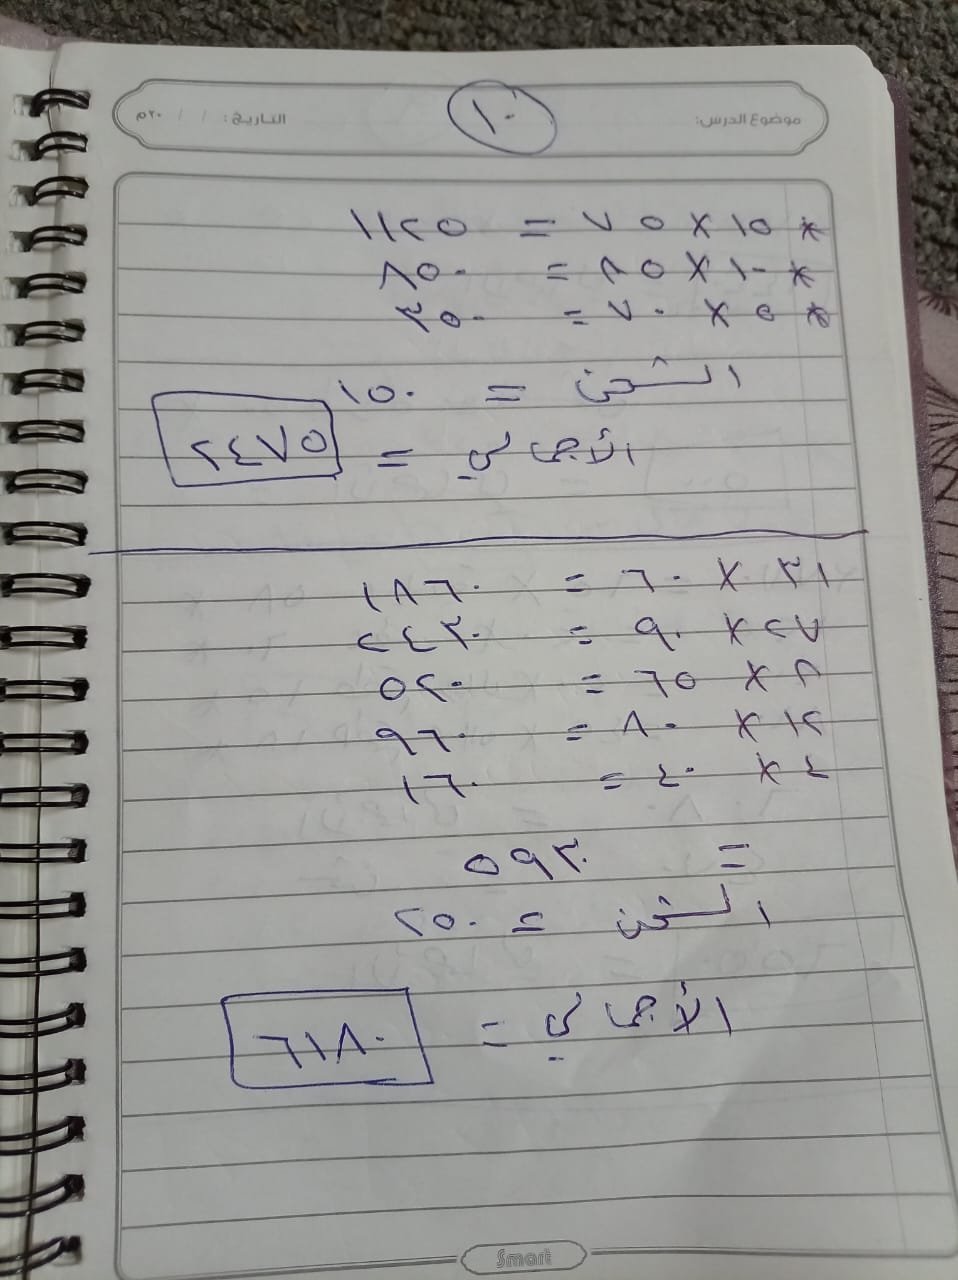 موضوع الدرس: ١٠ التاريخ: / / ٢٠م
* ١٥ × ٧٥ = ١١٢٥
* ١٠ × ٨٥ = ٨٥٠
* ٥ × ٧٠ = ٣٥٠
الشحن = ١٥٠
الأجمالي = ٢٤٧٥
٣١ × ٦٠ = ١٨٦٠
٢٧ × ٩٠ = ٢٤٣٠
٨ × ٦٥ = ٥٢٠
١٢ × ٨٠ = ٩٦٠
٤ × ٤٠ = ١٦٠
= ٥٩٣٠
الشحن = ٢٥٠
الأجمالي = ٦١٨٠
Smart